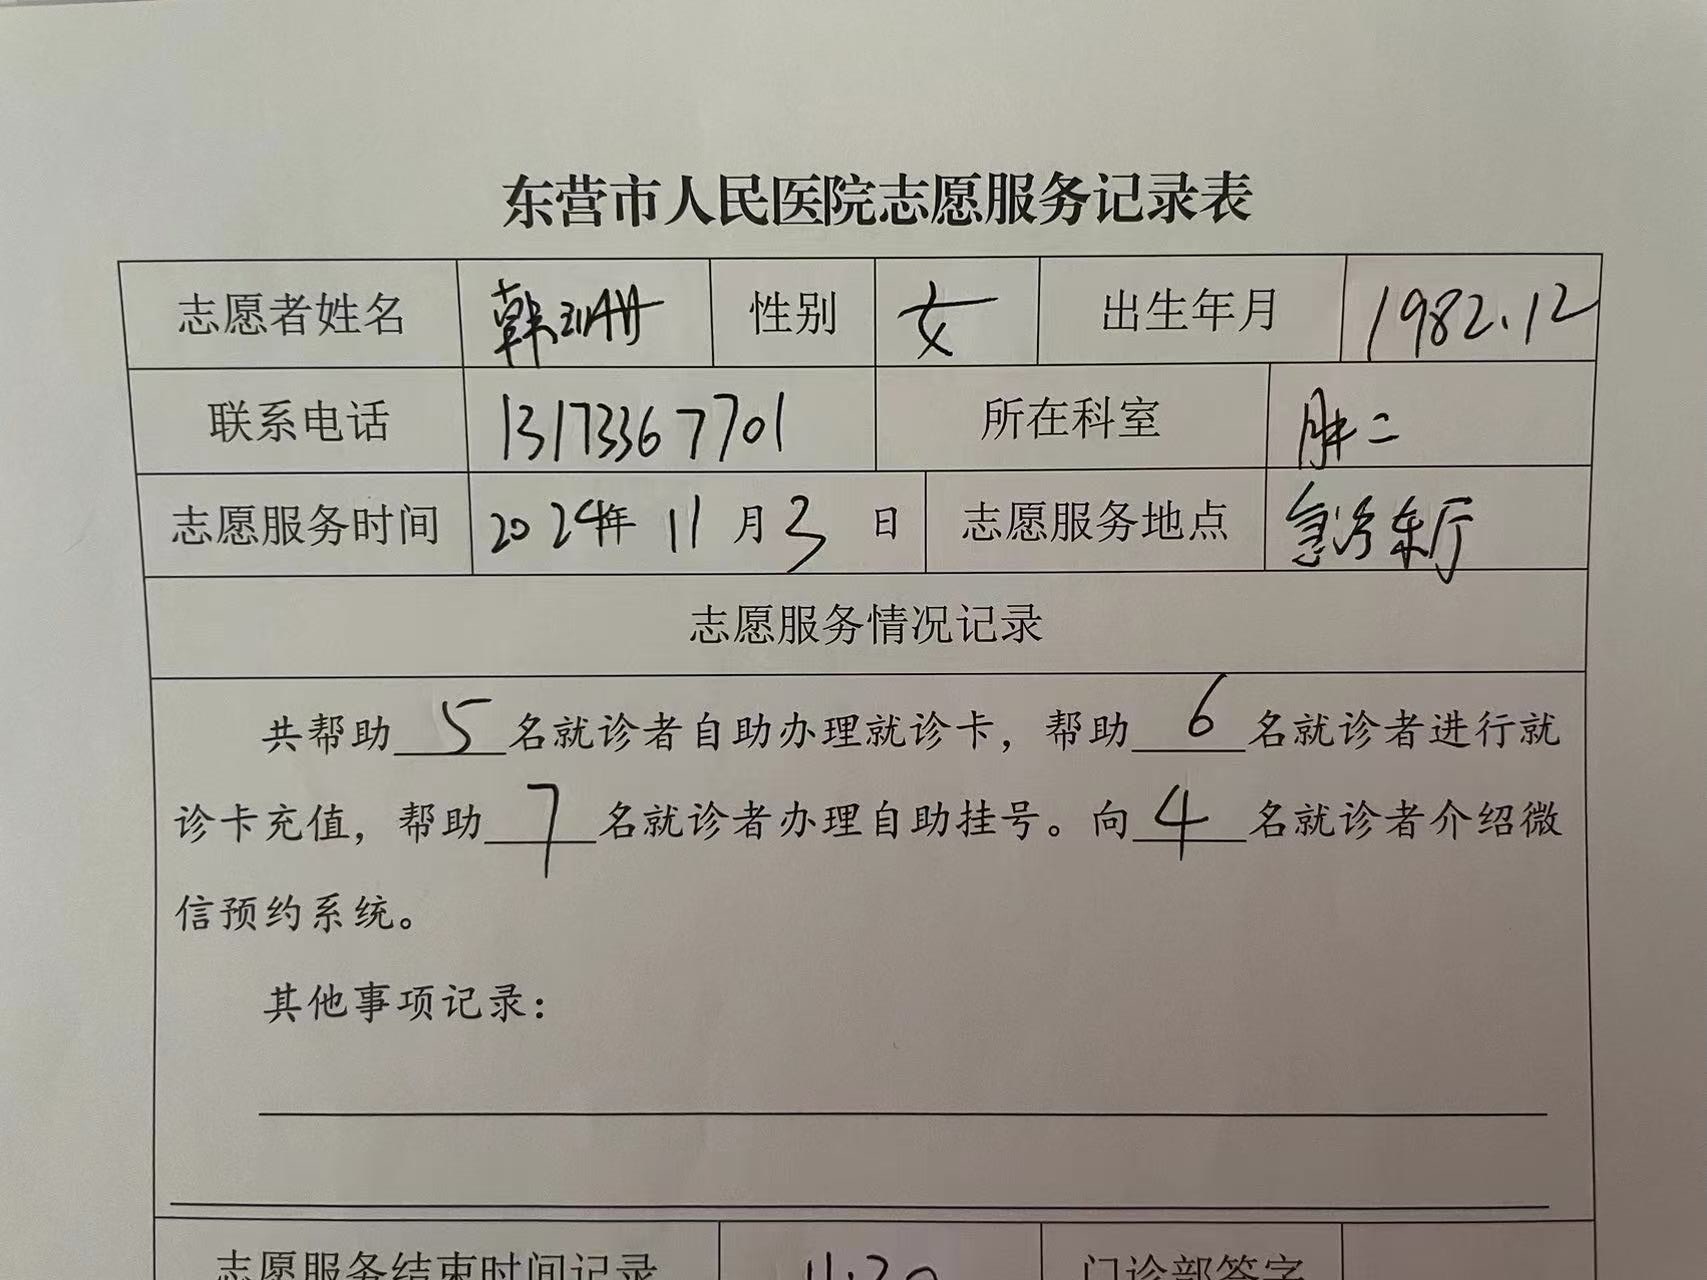 东营市人民医院志愿服务记录表
志愿者姓名 韩 性别 女 出生年月 1982.12
联系电话 13173367701 所在科室 二
志愿服务时间 2024年 11月3日 志愿服务地点 急诊东厅
志愿服务情况记录
共帮助5名就诊者自助办理就诊卡，帮助6名就诊者进行就
诊卡充值，帮助7名就诊者办理自助挂号。向4名就诊者介绍微
信预约系统。
其他事项记录：
志愿服务结束时间记录 11:30 门诊部签字